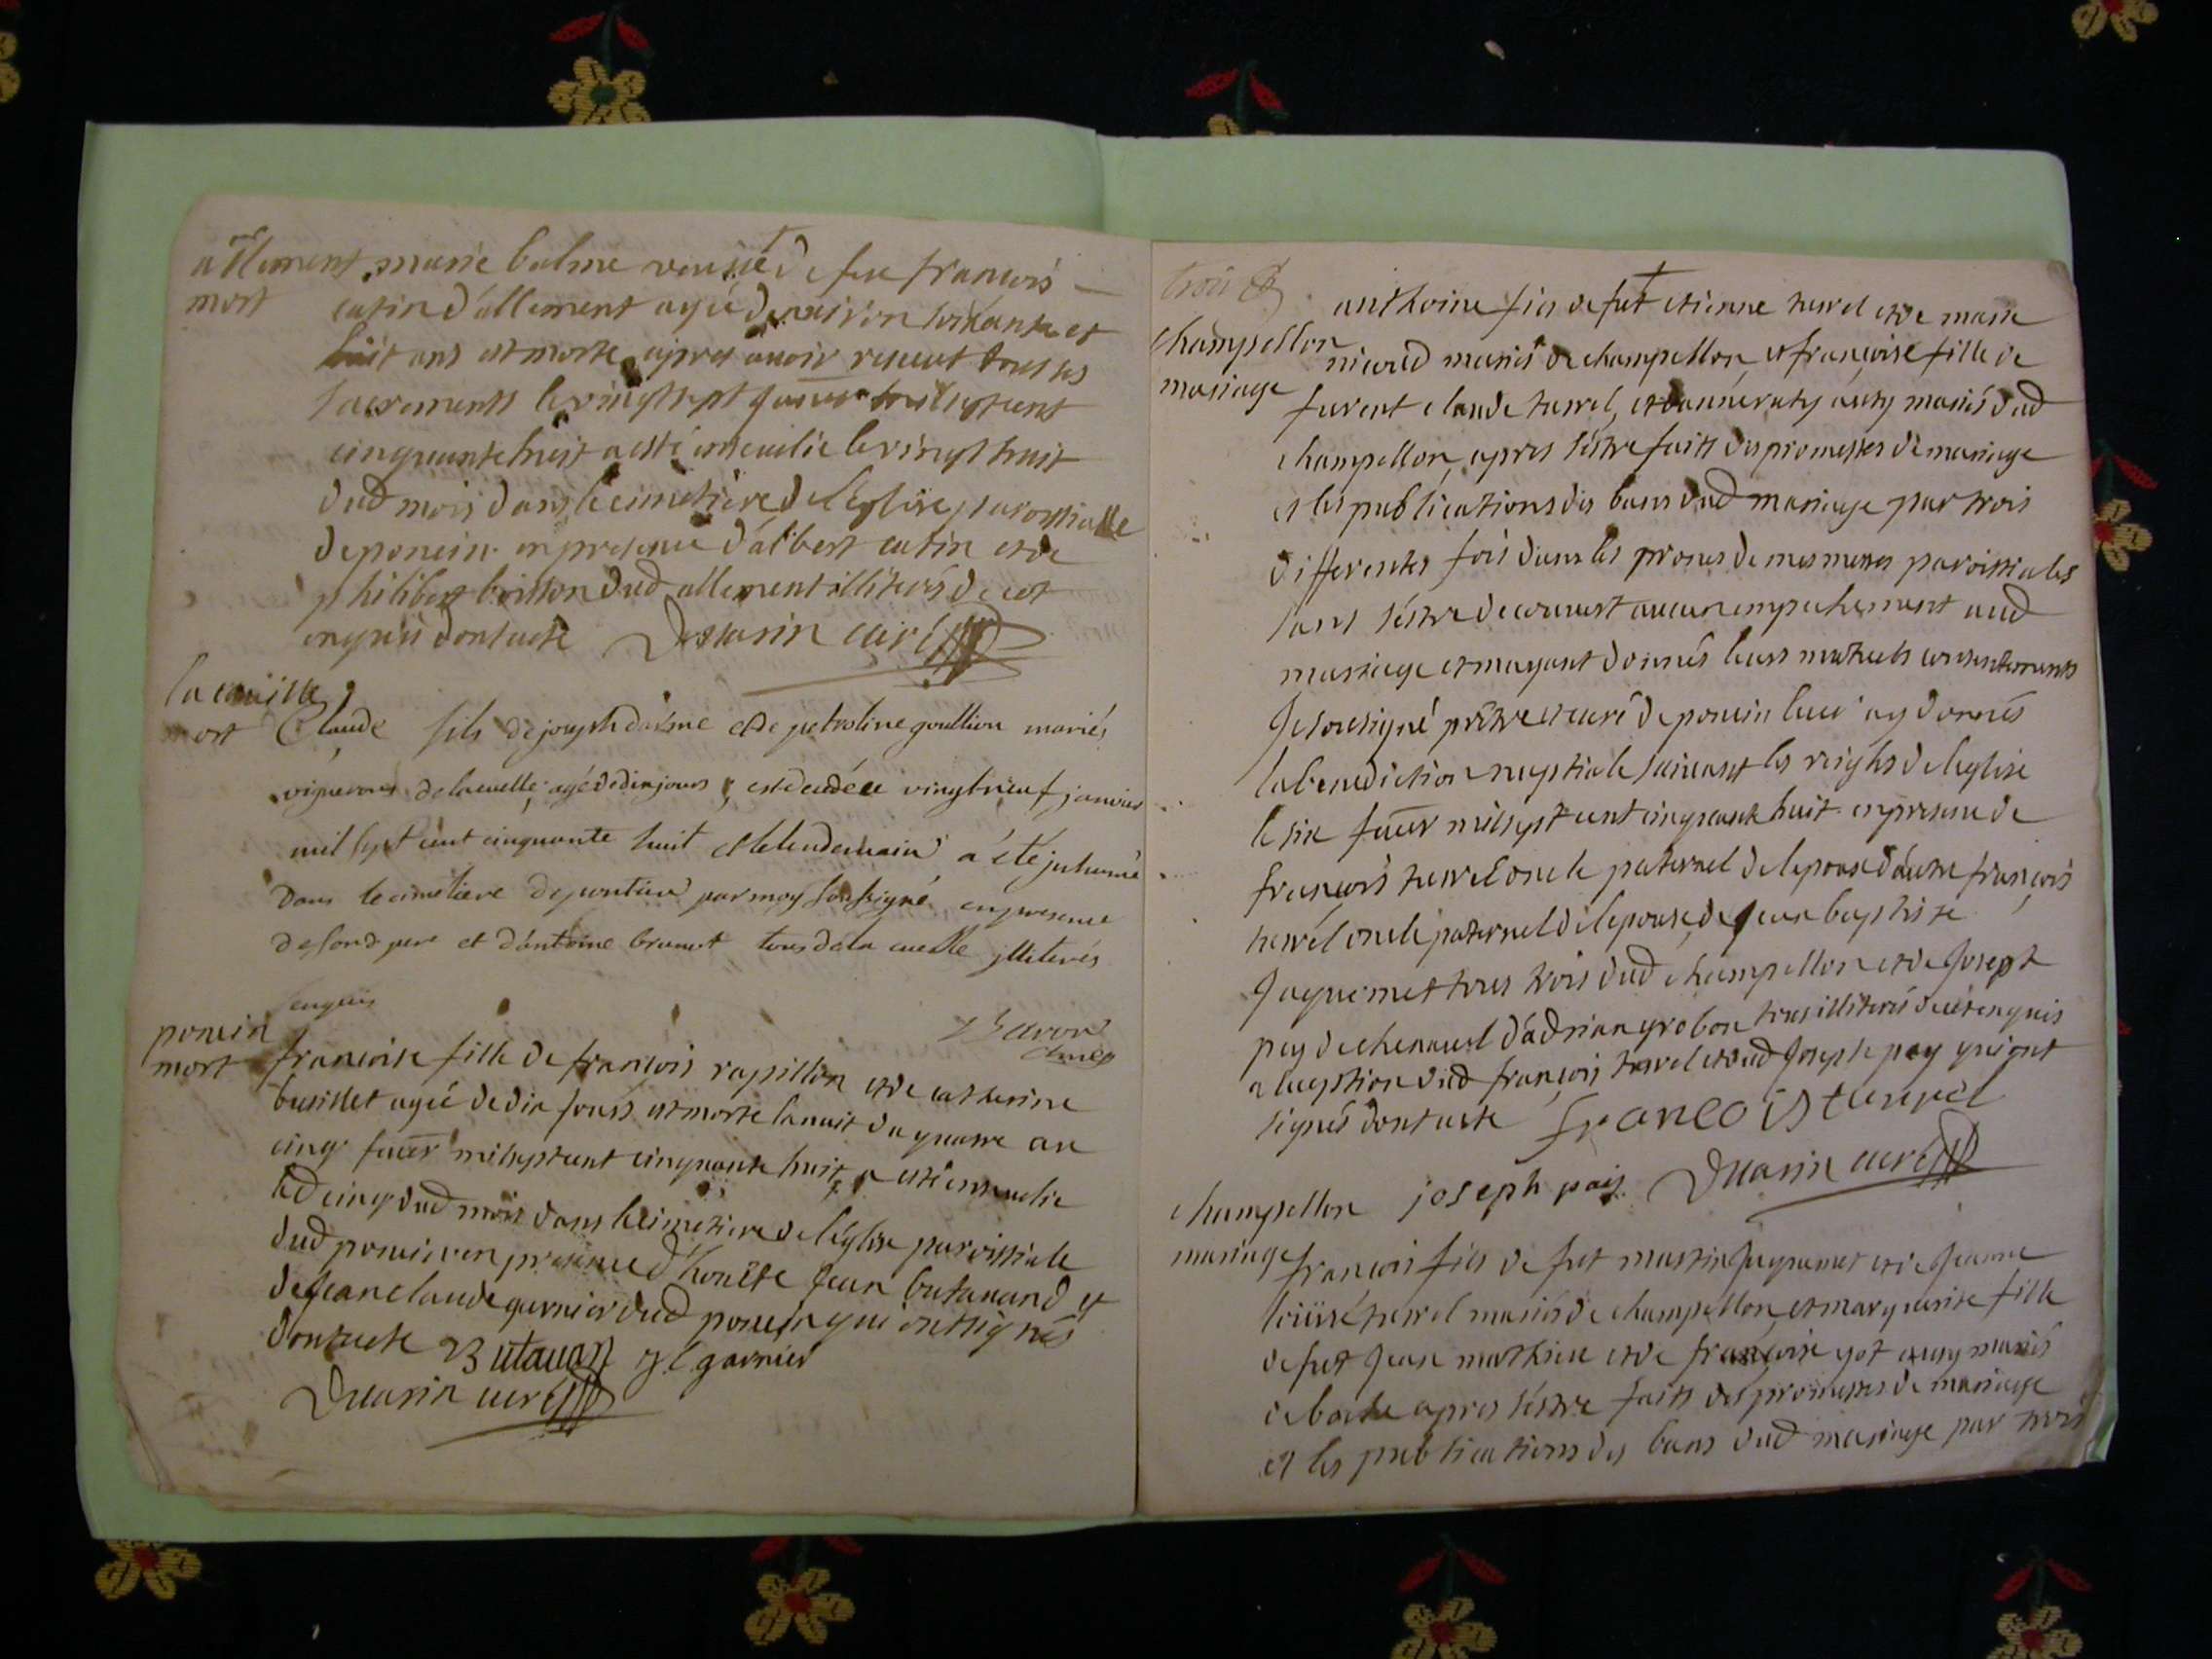 allement marie balme veuve de feu francois
mort catin d'allement agée d'environ soixante et
huit ans est morte apres avoir receut tous ses
sacrements le vingt sept mil sept cent
cinquante huit a esté ensevelie le vingt huit
dud mois dans le cimetiere de l'église paroissialle
de poncin en presence d'albert catin et de
philibert dud allement illiterés de ce
enquis dont acte curé
la cueille
mort Claude fils de joseph et de petroline goullion mariés
vignerons de la cueille agé de dix jours est decédé le vingt neuf janvier
mil sept cent cinquante huit et le lendemain a été juhumé
dans le cimetiere de par moy soussigné en presence
de sond pere et d'antoine brunet tous de la cueille illiterés
enquis
poncin
mort francoise fille de francois rapillon et de catherine
agée de dix jours est morte la nuit du quatre au
cinq mil sept cent cinquante huit a esté ensevelie
led cinq dud mois dans le cimetiere de l'église paroissiale
dud poncin en presence d'honete jean butavand et
de jean claude garnier dud poncin qui ont signés
dont acte Butavan j c garnier
curé
trois
anthoine fils de fut etienne et de marie
champellon
mariés de champellon et francoise fille de
mariage
furent claude et d'anne aussy mariés dud
champellon, apres s'éstre faits des promesses de mariage
et les publications des bans dud mariage par trois
differentes fois dans les prones de mes messes paroissiales
sans s'éstre decouvert aucun empechement aud
mariage et m'ayant donnés leurs mutuels consentements
je soussigné prêtre et curé de poncin leur ay donnés
la benediction nuptiale suivant les reigles de l'eglise
le six mil sept cent cinquante huit en presence de
francois oncle paternel de l'epoux d'autre francois
oncle paternel de l'epouse, de jean baptiste
jaquemet tous trois dud champellon et de joseph
pay de chenavel d'adrian grobon tous illiterés de ce enquis
a l'exception dud francois et dud joseph pay qui ont
signés dont acte
joseph pay curé
champellon
mariage francois fils de fut martin jaquemet et de jeanne
mariés de champellon et marguerite fille
de fut jean mathieu et de francoise got aussy mariés
de apres s'éstre faits des promesses de mariage
et les publications des bans dud mariage par trois